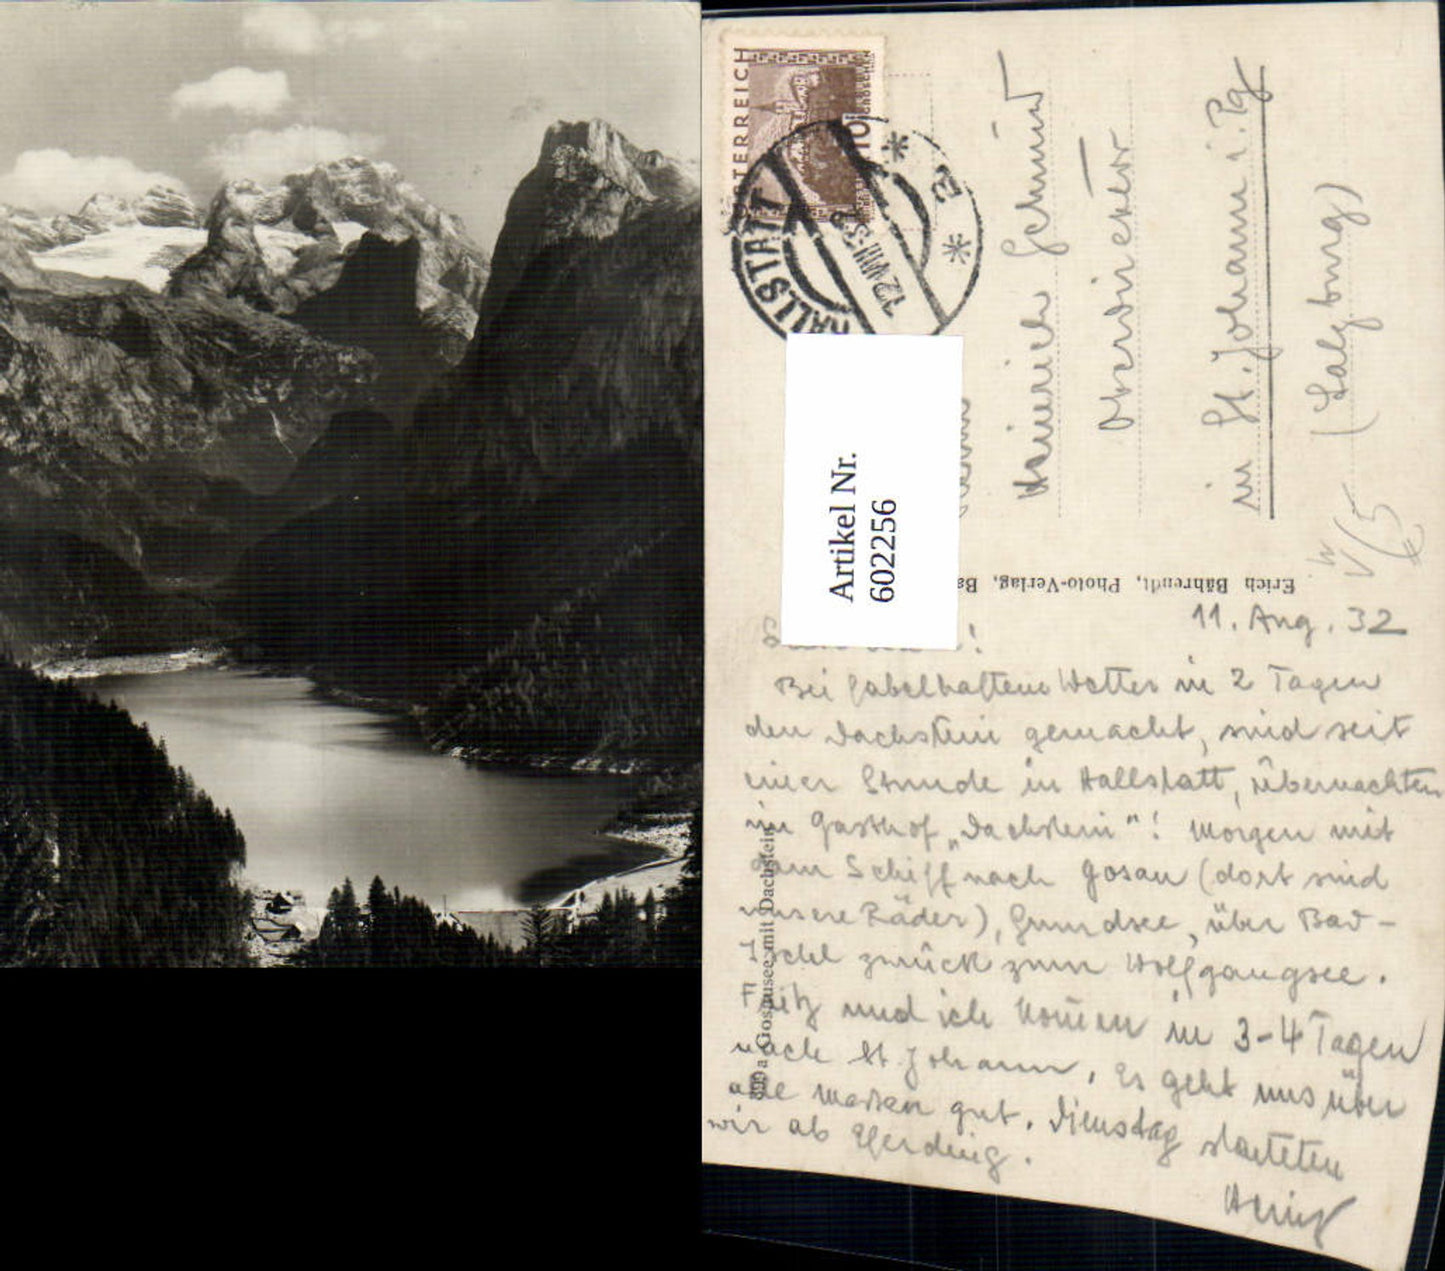 ÖSTERREICH
10
GROSCHEN
HALLSTATT
12.VIII.32
* B *
Artikel Nr.
602256
Heinrich
Oberdirektor
in St. Johann i. Pg
(Salzburg)
Erich Bährendt, Photo-Verlag, Ba
899a Gosausee mit Dachstein
11. Aug. 32
Bei fabelhaftem Wetter in 2 Tagen
den Dachstein gemacht, sind seit
einer Stunde in Hallstatt, übernachten
im Gasthof „Dachstein"! Morgen mit
dem Schiff nach Gosau (dort sind
unsere Räder), Grundlsee, über Bad-
Ischl zurück zum Wolfgangsee.
Fritz und ich kommen in 3-4 Tagen
nach St. Johann. Es geht uns über
alle Massen gut. Dienstag starteten
wir ab Eferding.